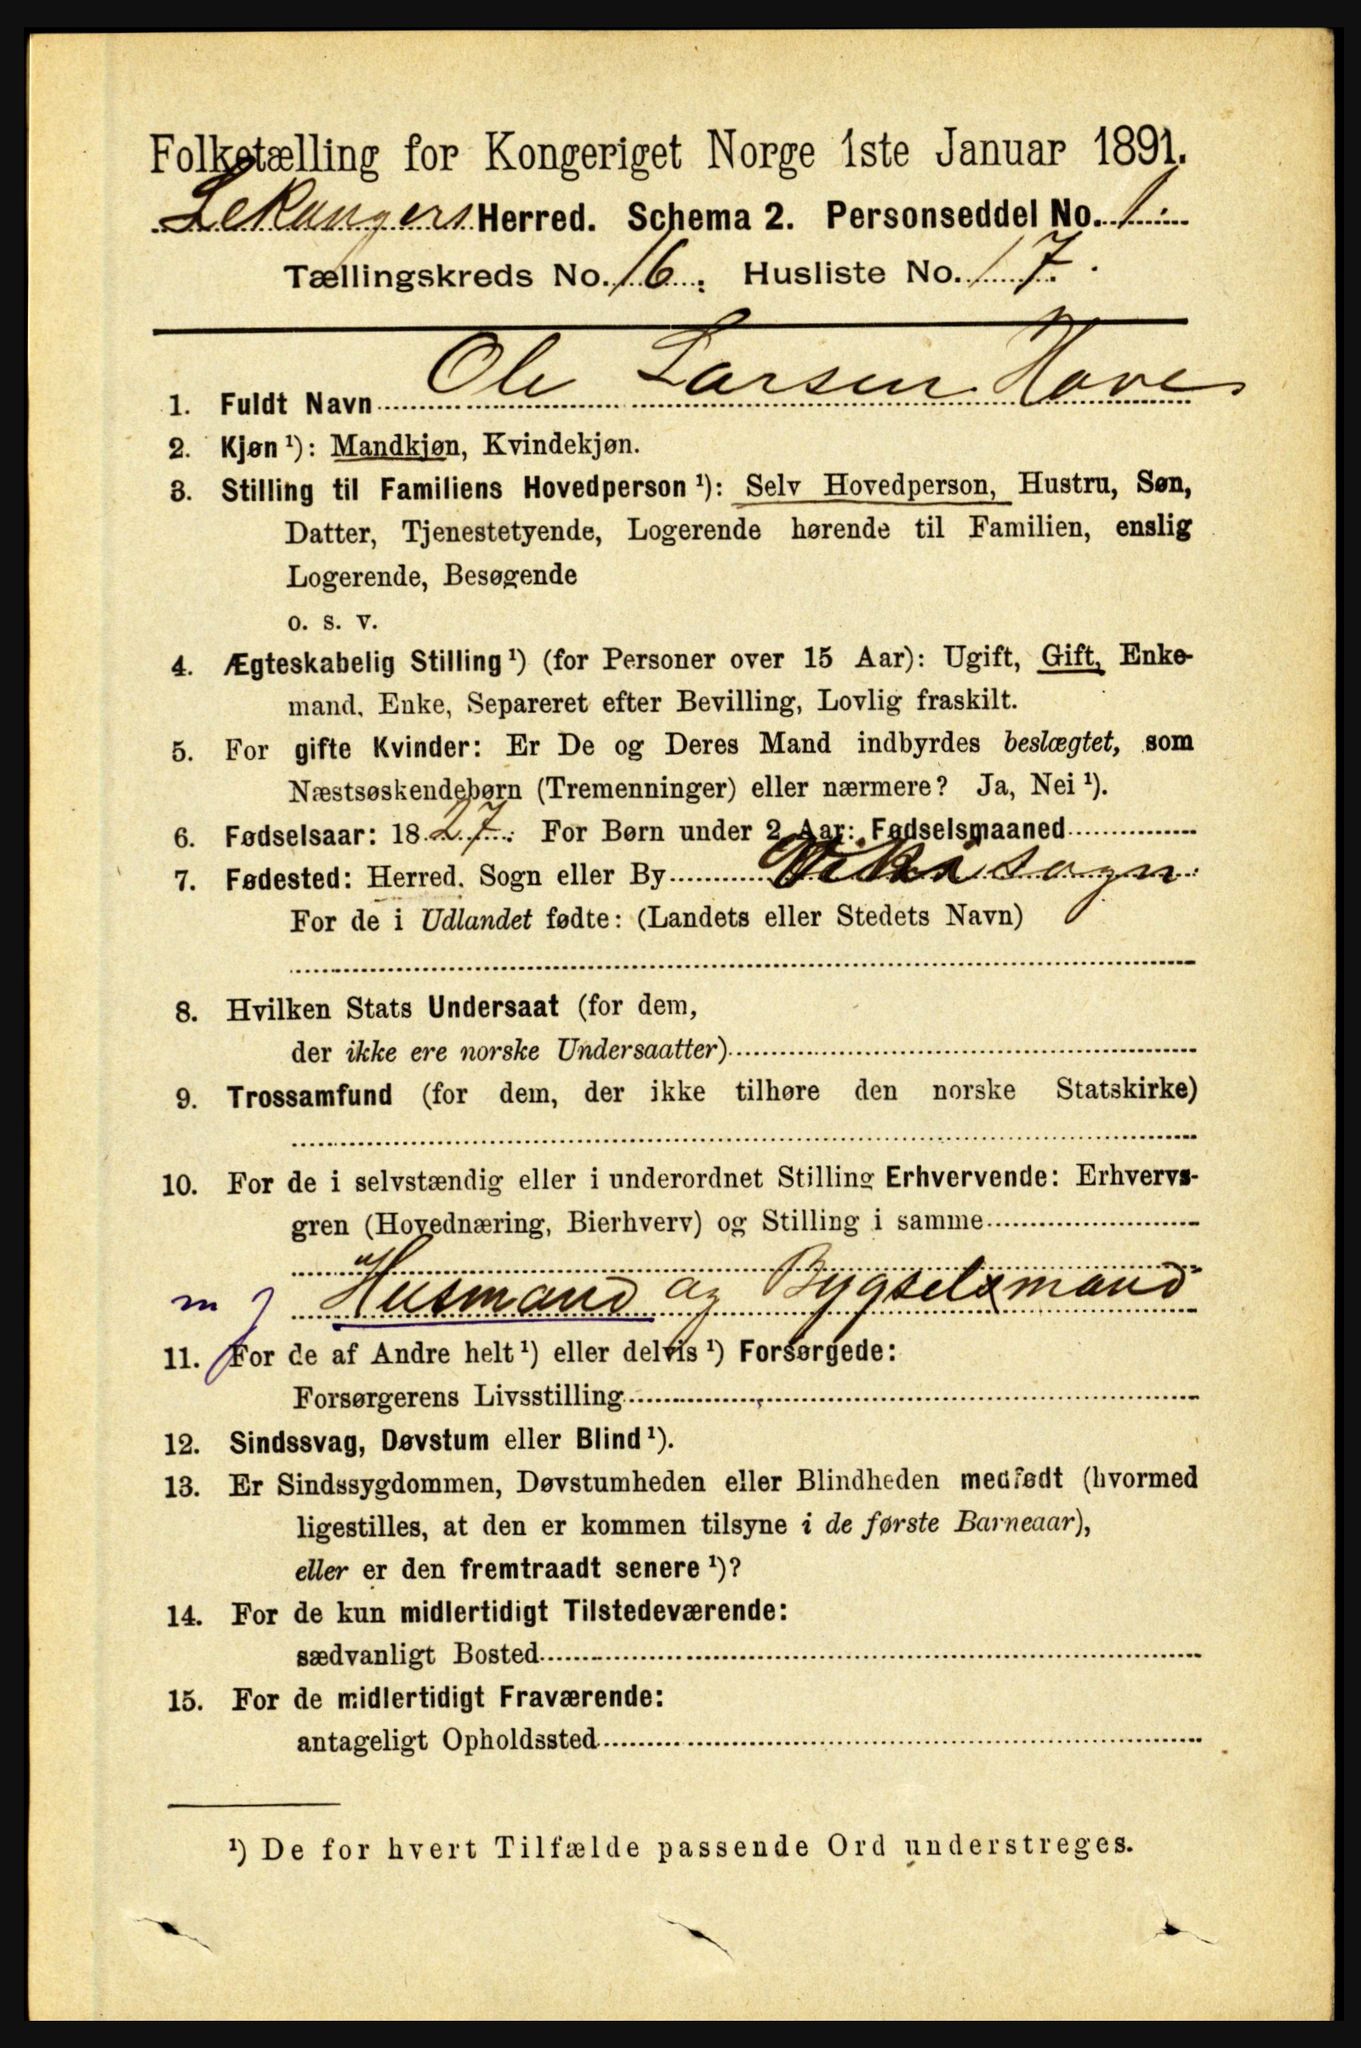 Folketælling for Kongeriget Norge 1ste Januar 1891.
Lekangers Herred. Schema 2. Personseddel No. 1.
Tællingskreds No. 16. Husliste No. 17.
1. Fuldt Navn Ole Larsen Hove
2. Kjøn ¹): Mandkjøn, Kvindekjøn.
3. Stilling til Familiens Hovedperson ¹): Selv Hovedperson, Hustru, Søn,
Datter, Tjenestetyende, Logerende hørende til Familien, enslig
Logerende, Besøgende
o. s. v.
4. Ægteskabelig Stilling ¹) (for Personer over 15 Aar): Ugift, Gift, Enke-
mand, Enke, Separeret efter Bevilling, Lovlig fraskilt.
5. For gifte Kvinder: Er De og Deres Mand indbyrdes beslægtet, som
Næstsøskendebørn (Tremenninger) eller nærmere? Ja, Nei ¹).
6. Fødselsaar: 1827. For Børn under 2 Aar: Fødselsmaaned
7. Fødested: Herred. Sogn eller By Viks sogn
For de i Udlandet fødte: (Landets eller Stedets Navn)
8. Hvilken Stats Undersaat (for dem,
der ikke ere norske Undersaatter)
9. Trossamfund (for dem, der ikke tilhøre den norske Statskirke)
10. For de i selvstændig eller i underordnet Stilling Erhvervende: Erhvervs-
gren (Hovednæring, Bierhverv) og Stilling i samme
m J Husmand og Bygselsmand
11. For de af Andre helt ¹) eller delvis ¹) Forsørgede:
Forsørgerens Livsstilling
12. Sindssvag, Døvstum eller Blind ¹).
13. Er Sindssygdommen, Døvstumheden eller Blindheden medfødt (hvormed
ligestilles, at den er kommen tilsyne i de første Barneaar),
eller er den fremtraadt senere ¹)?
14. For de kun midlertidigt Tilstedeværende:
sædvanligt Bosted
15. For de midlertidigt Fraværende:
antageligt Opholdssted
¹) De for hvert Tilfælde passende Ord understreges.